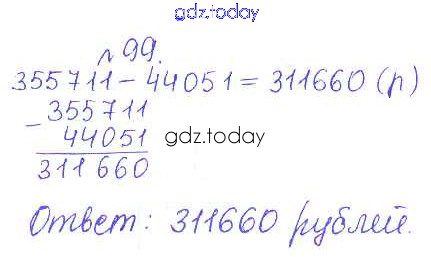 gdz.today
№ 99.
355711 - 44051 = 311660 (р)
- 355711
44051 gdz.today
311660
Ответ: 311660 рублей.